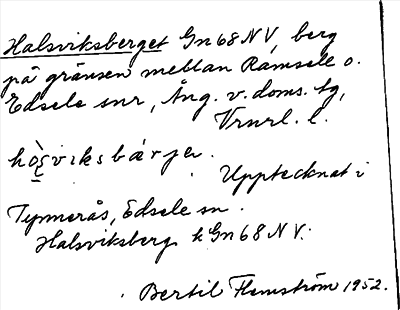 Halsviksberget Gn68NV, berg
på gränsen mellan Ramsele o.
Edsele snr, Ång. v. doms. tg,
Vrnrl. l.
Upptecknat i
Tynnerås, Edsele sn.
Halsviksberg k Gn68NV.
Bertil Flemström 1952.